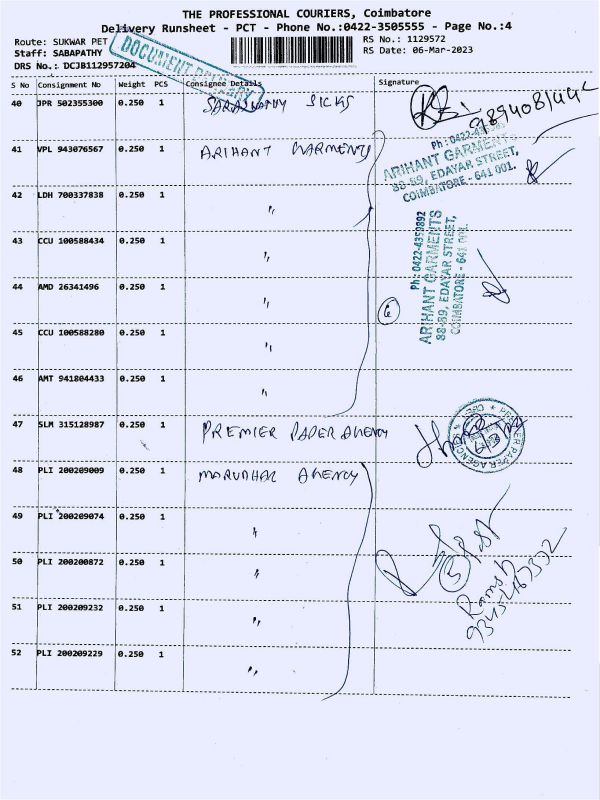 THE PROFESSIONAL COURIERS, Coimbatore
Delivery Runsheet - PCT - Phone No.:0422-3505555 - Page No.:4
Route: SUKWAR PET
RS No.: 1129572
Staff: SABAPATHY
RS Date: 06-Mar-2023
DRS No.: DCJB112957204
DOCUMENT DELIVERY
S No Consignment No Weight PCS Consignee Details Signature
40 JPR 502355300 0.250 1
41 VPL 943076567 0.250 1 ARIHANT GARMENTS
Ph : 0422-4359892
ARIHANT GARMENTS
88-89, EDAYAR STREET,
COIMBATORE - 641 001.
42 LDH 700337838 0.250 1 "
43 CCU 100588434 0.250 1 "
Ph : 0422-4359892
ARIHANT GARMENTS
88-89, EDAYAR STREET,
COIMBATORE - 641 001.
44 AMD 26341496 0.250 1 "
6
45 CCU 100588280 0.250 1 "
46 AMT 941804433 0.250 1 "
47 SLM 315128987 0.250 1 PREMIER PAPER AGENCY
48 PLI 200209009 0.250 1 MARUDHAR AGENCY
49 PLI 200209074 0.250 1 "
50 PLI 200200872 0.250 1 "
5
51 PLI 200209232 0.250 1 "
Ramesh
52 PLI 200209229 0.250 1 "